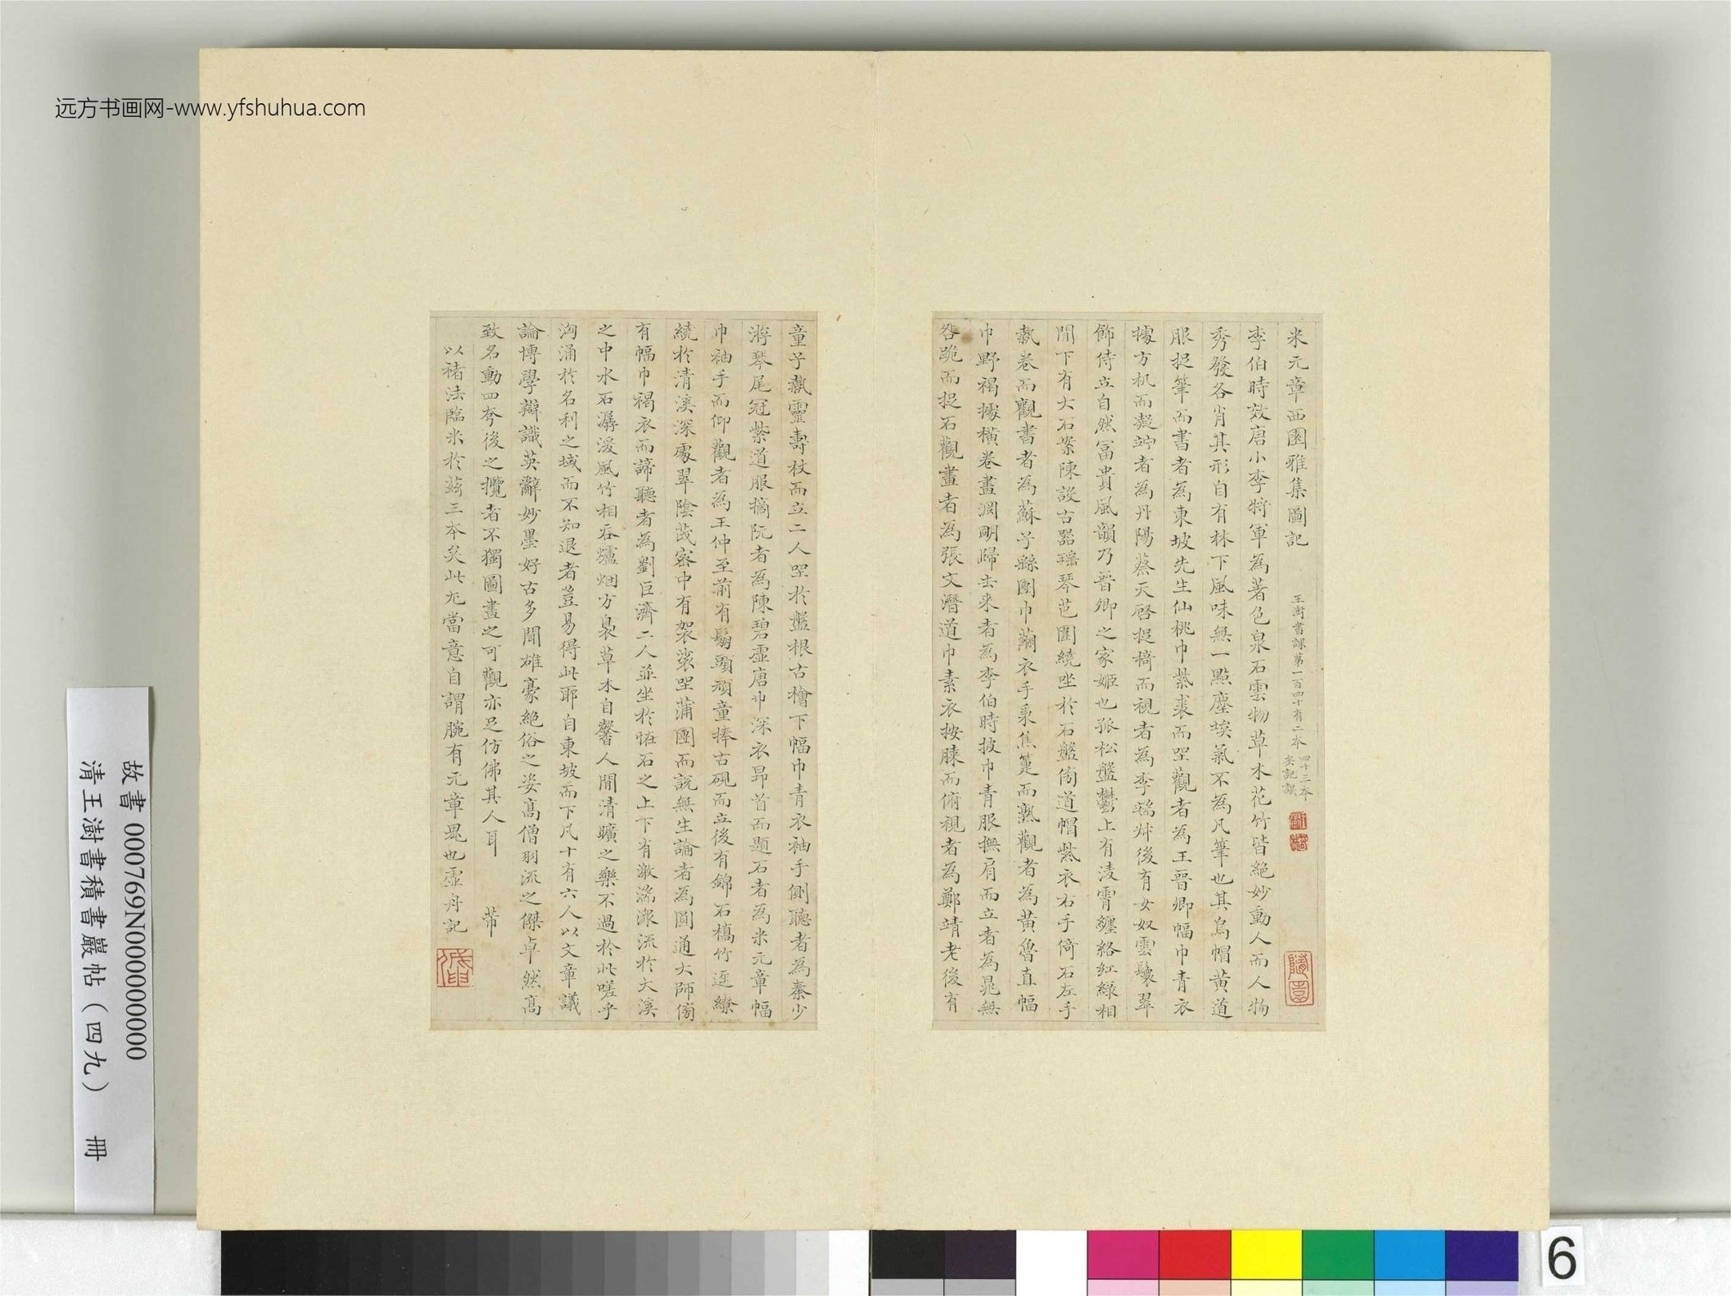 远方书画网-www.yfshuhua.com
米元章西園雅集圖記
王澍書課第一百四十有二本
四十三本
李伯時效唐小李將軍為著色泉石雲物草木花竹皆絕妙動人而人物
秀發各肖其形自有林下風味無一點塵埃氣不為凡筆也其烏帽黃道
服捉筆而書者為東坡先生仙桃巾紫裘而坐觀者為王晉卿幅巾青衣
據方机而凝竚者為丹陽蔡天啓捉椅而視者為李端叔後有女奴雲鬟翠
飾侍立自然富貴風韻乃晉卿之家姬也孤松盤鬱上有淩霄纏絡紅綠相
間下有大石案陳設古器瑤琴芭圍繞坐於石盤傍道帽紫衣右手倚石左手
執卷而觀書者為蘇子繇團巾繭衣手秉蕉箑而熟觀者為黃魯直幅
巾野褐據橫卷畫淵明歸去來者為李伯時披巾青服撫肩而立者為晁無
咎跪而捉石觀畫者為張文潛道巾素衣按膝而俯視者為鄭靖老後有
童子執靈壽杖而立二人坐於盤根古檜下幅巾青衣袖手側聽者為秦少
游琴尾冠紫道服摘阮者為陳碧虛唐巾深衣昻首而題石者為米元章幅
巾袖手而仰觀者為王仲至前有鬅頭頑童捧古硯而立後有錦石橋竹逕繚
繞於清溪深處翠陰茂密中有袈裟坐蒲團而說無生論者為圓通大師傍
有幅巾褐衣而諦聽者為劉巨濟二人並坐於恠石之上下有激湍淙流於大溪
之中水石潺湲風竹相吞爐烟方裊草木自馨人間清曠之樂不過於此嗟乎
洶涌於名利之域而不知退者豈易得此耶自東坡而下凡十有六人以文章議
論博學辯識英辭妙墨好古多聞雄豪絕俗之姿高僧羽流之傑卓然高
致名動四夸後之攬者不獨圖畫之可觀亦足仿佛其人耳 芾
以褚法臨米於茲三本矣此尤當意自謂腕有元章鬼也虛舟記
故書 000769N000000000
清王澍書積書巖帖（四九） 冊
6